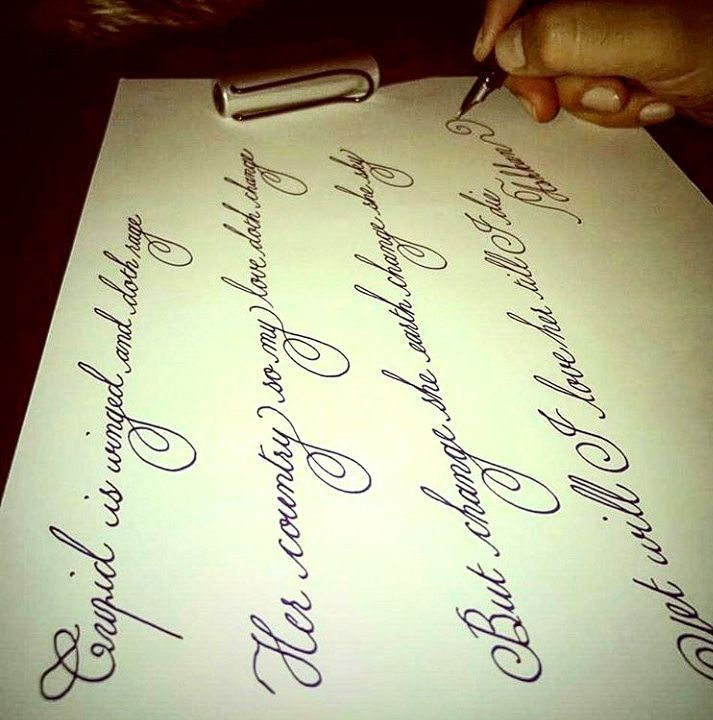 Cupid is winged and doth rage
Her country so my love doth change
But change she earth change she sky
Yet will I love her till I die